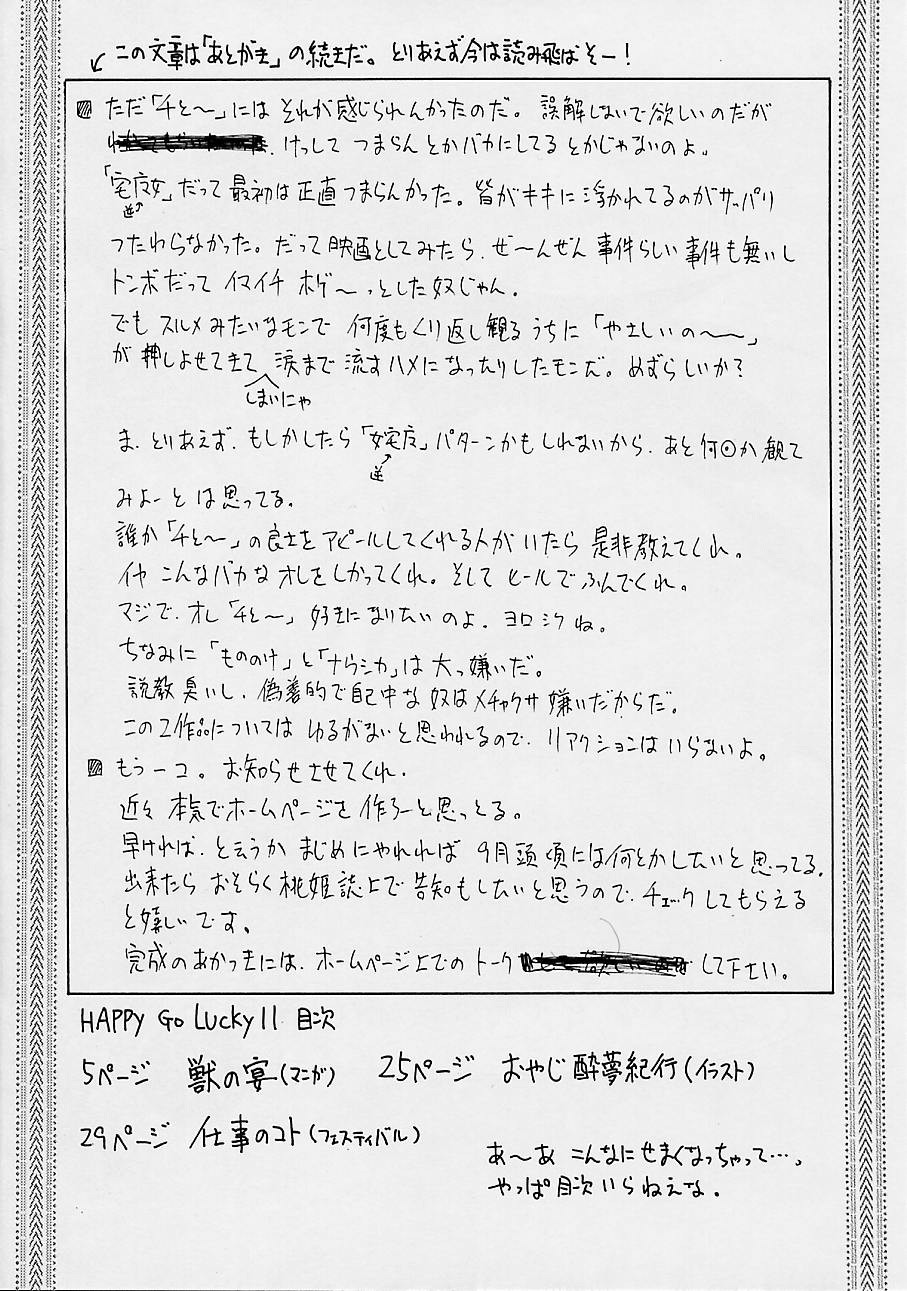 この文章は「あとがき」の続きだ。とりあえず今は読み飛ばそー!
ただ「千と〜」にはそれが感じられんかったのだ。誤解しないで欲しいのだが
けっして つまらんとかバカにしてるとかじゃないのよ。
「宅広女」だって最初は正直つまらんかった。皆がキキに浮かれてるのがサッパリ
逆
つたわらなかった。だって映画としてみたら、ぜ〜んぜん事件らしい事件も無いし
トンボだって イマイチ ホゲ〜っとした奴じゃん。
でも スルメみたいなモンで 何度もくり返し観るうちに「やさしいの〜〜」
が押しよせてきて 涙まで流すハメになったりしたモンだ。めずらしいか?
しまいにゃ
ま、とりあえず、もしかしたら「女宅広」パターンかもしれないから、あと何回か観て
逆
みよーとは思ってる。
誰か「千と〜」の良さをアピールしてくれる人がいたら是非教えてくれ。
イヤ こんなバカなオレをしかってくれ。そして ヒールでふんでくれ。
マジで、オレ「千と〜」好きになりたいのよ。ヨロシクね。
ちなみに「もののけ」と「ナウシカ」は大っ嫌いだ。
説教臭いし、偽善的で自己中な奴はメチャクサ嫌いだからだ。
この2作品については ゆるがないと思われるので、リアクションはいらないよ。
もう一コ。お知らせさせてくれ。
近々 本気でホームページを作ろーと思っとる。
早ければ、と云うか まじめにやれれば 9月頭頃には何とかしたいと思ってる。
出来たら おそらく桃姫誌上で告知もしたいと思うので、チェックしてもらえる
と嬉しいです。
完成のあかつきには、ホームページ上でのトーク して下さい。
HAPPY Go Lucky 11 目次
5ページ 獣の宴(マニガ) 25ページ おやじ酔夢紀行(イラスト)
29ページ 仕事のコト(フェスティバル)
あ〜あ こんなにせまくなっちゃって…。
やっぱ目次いらねえな。